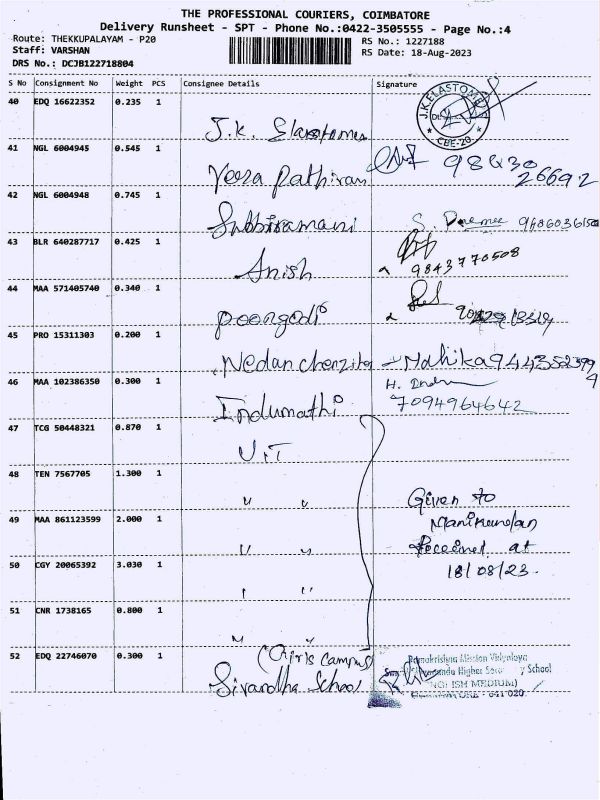 THE PROFESSIONAL COURIERS, COIMBATORE
Delivery Runsheet - SPT - Phone No.:0422-3505555 - Page No.:4
Route: THEKKUPALAYAM - P20
RS No.: 1227188
Staff: VARSHAN
RS Date: 18-Aug-2023
DRS No.: DCJB122718804
S No Consignment No Weight PCS Consignee Details Signature
40 EDQ 16622352 0.235 1 J.K. Elastomers
J.K.ELASTOMERS
CBE-20
41 NGL 6004945 0.545 1 Veera Pathiran 98430 26692
42 NGL 6004948 0.745 1 Subbiramani S.
43 BLR 640287717 0.425 1 Anish 9843770508
44 MAA 571405740 0.340 1 poongodi
45 PRO 15311303 0.200 1 Mahika
46 MAA 102386350 0.300 1 Indumathi H. 7094964642
47 TCG 50448321 0.870 1
48 TEN 7567705 1.300 1 " " Given to
49 MAA 861123599 2.000 1 " " Manikandan
received at
50 CGY 20065392 3.030 1 " " 18/08/23.
51 CNR 1738165 0.800 1 " "
52 EDQ 22746070 0.300 1 (Girls campus)
School
Ramakrishna Mission Vidyalaya
Higher School
MEDIUM)
641 020